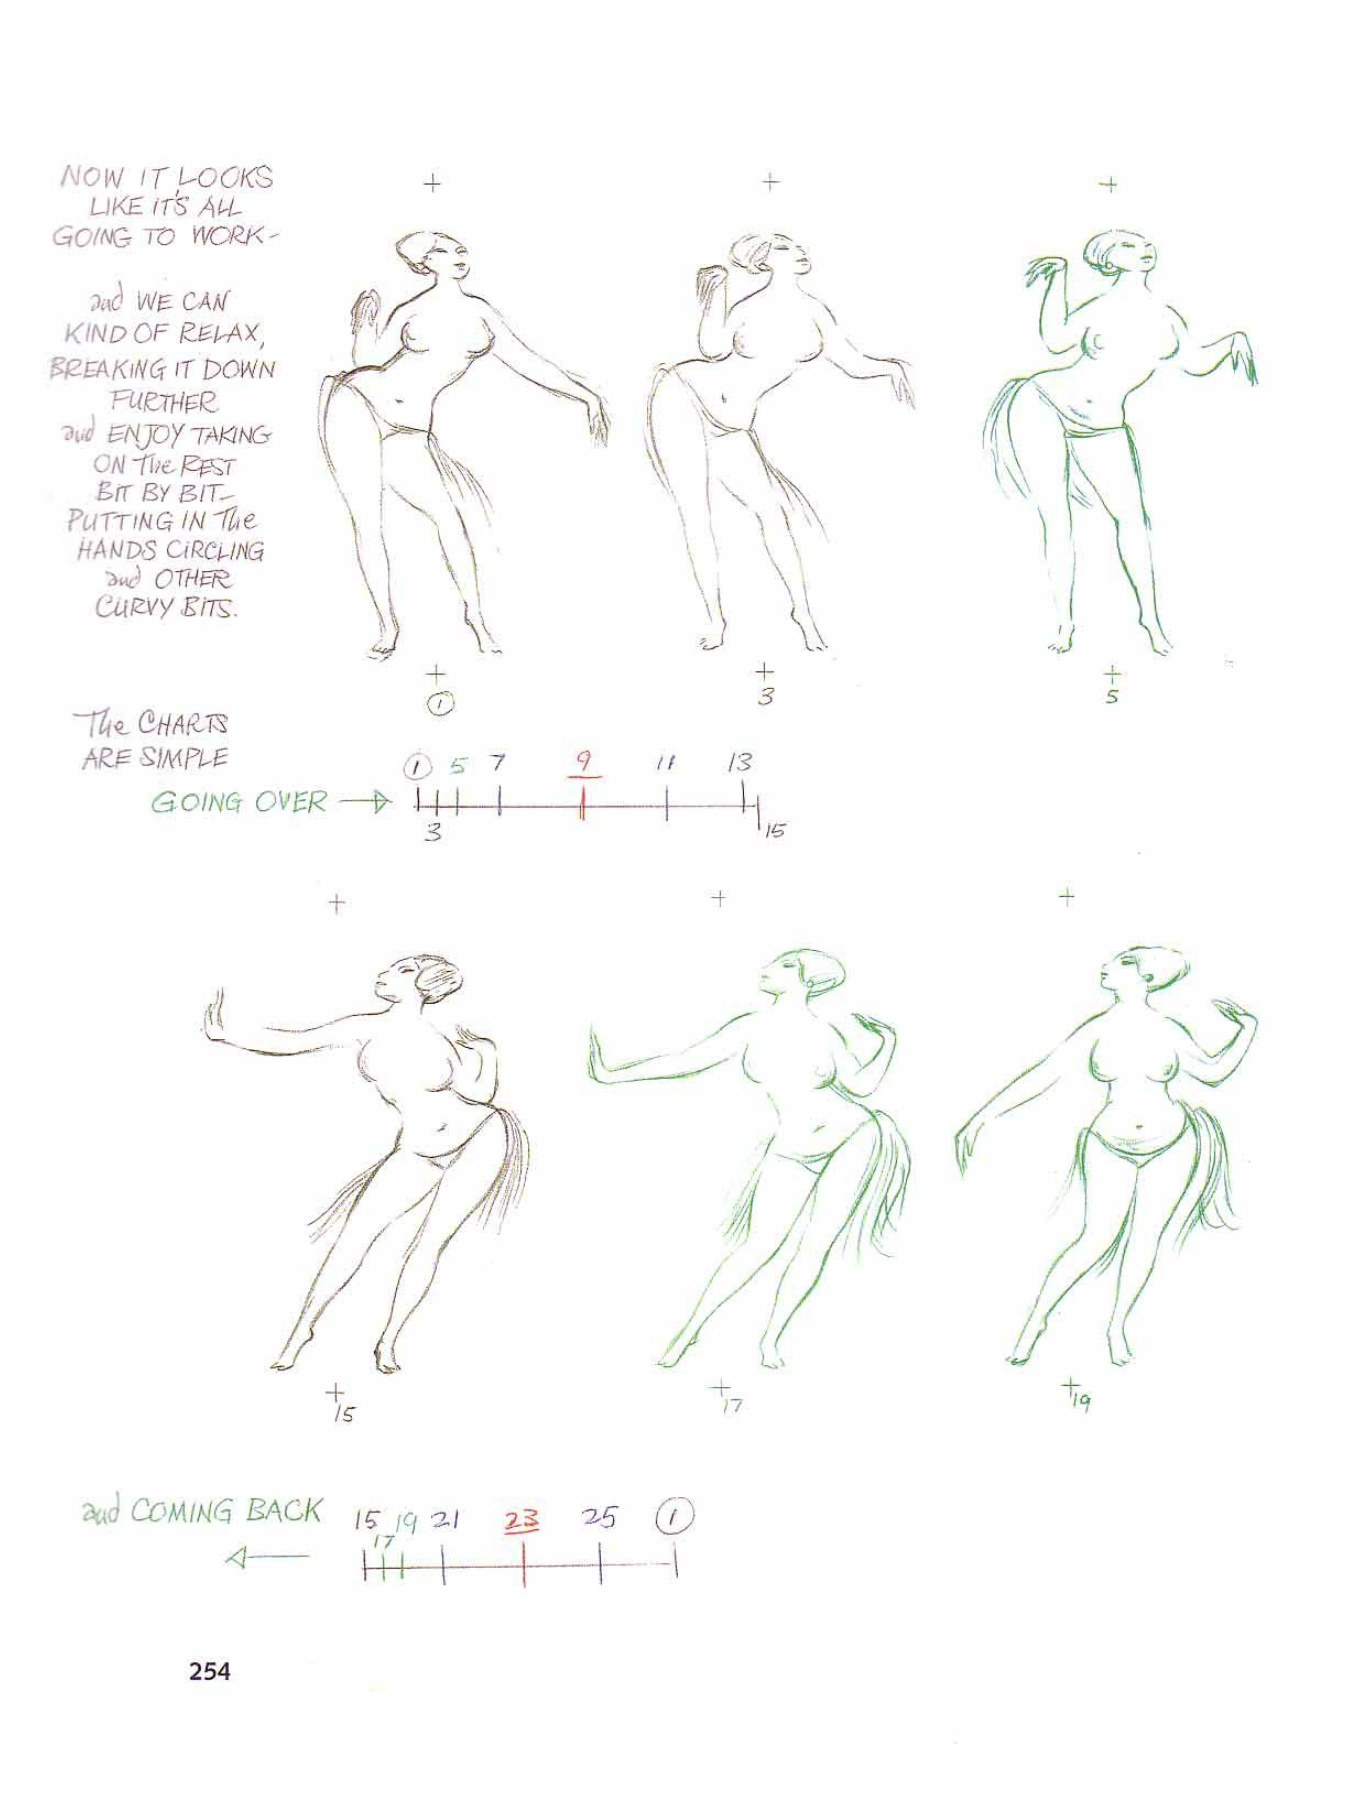 NOW IT LOOKS
LIKE IT'S ALL
GOING TO WORK-
and WE CAN
KIND OF RELAX,
BREAKING IT DOWN
FURTHER
and ENJOY TAKING
ON The REST
BIT BY BIT-
PUTTING IN The
HANDS CIRCLING
and OTHER
CURVY BITS.
1
3
5
The CHARTS
ARE SIMPLE
1 5 7 9 11 13
GOING OVER
3 15
15
17
19
and COMING BACK
15 17 19 21 23 25 1
254